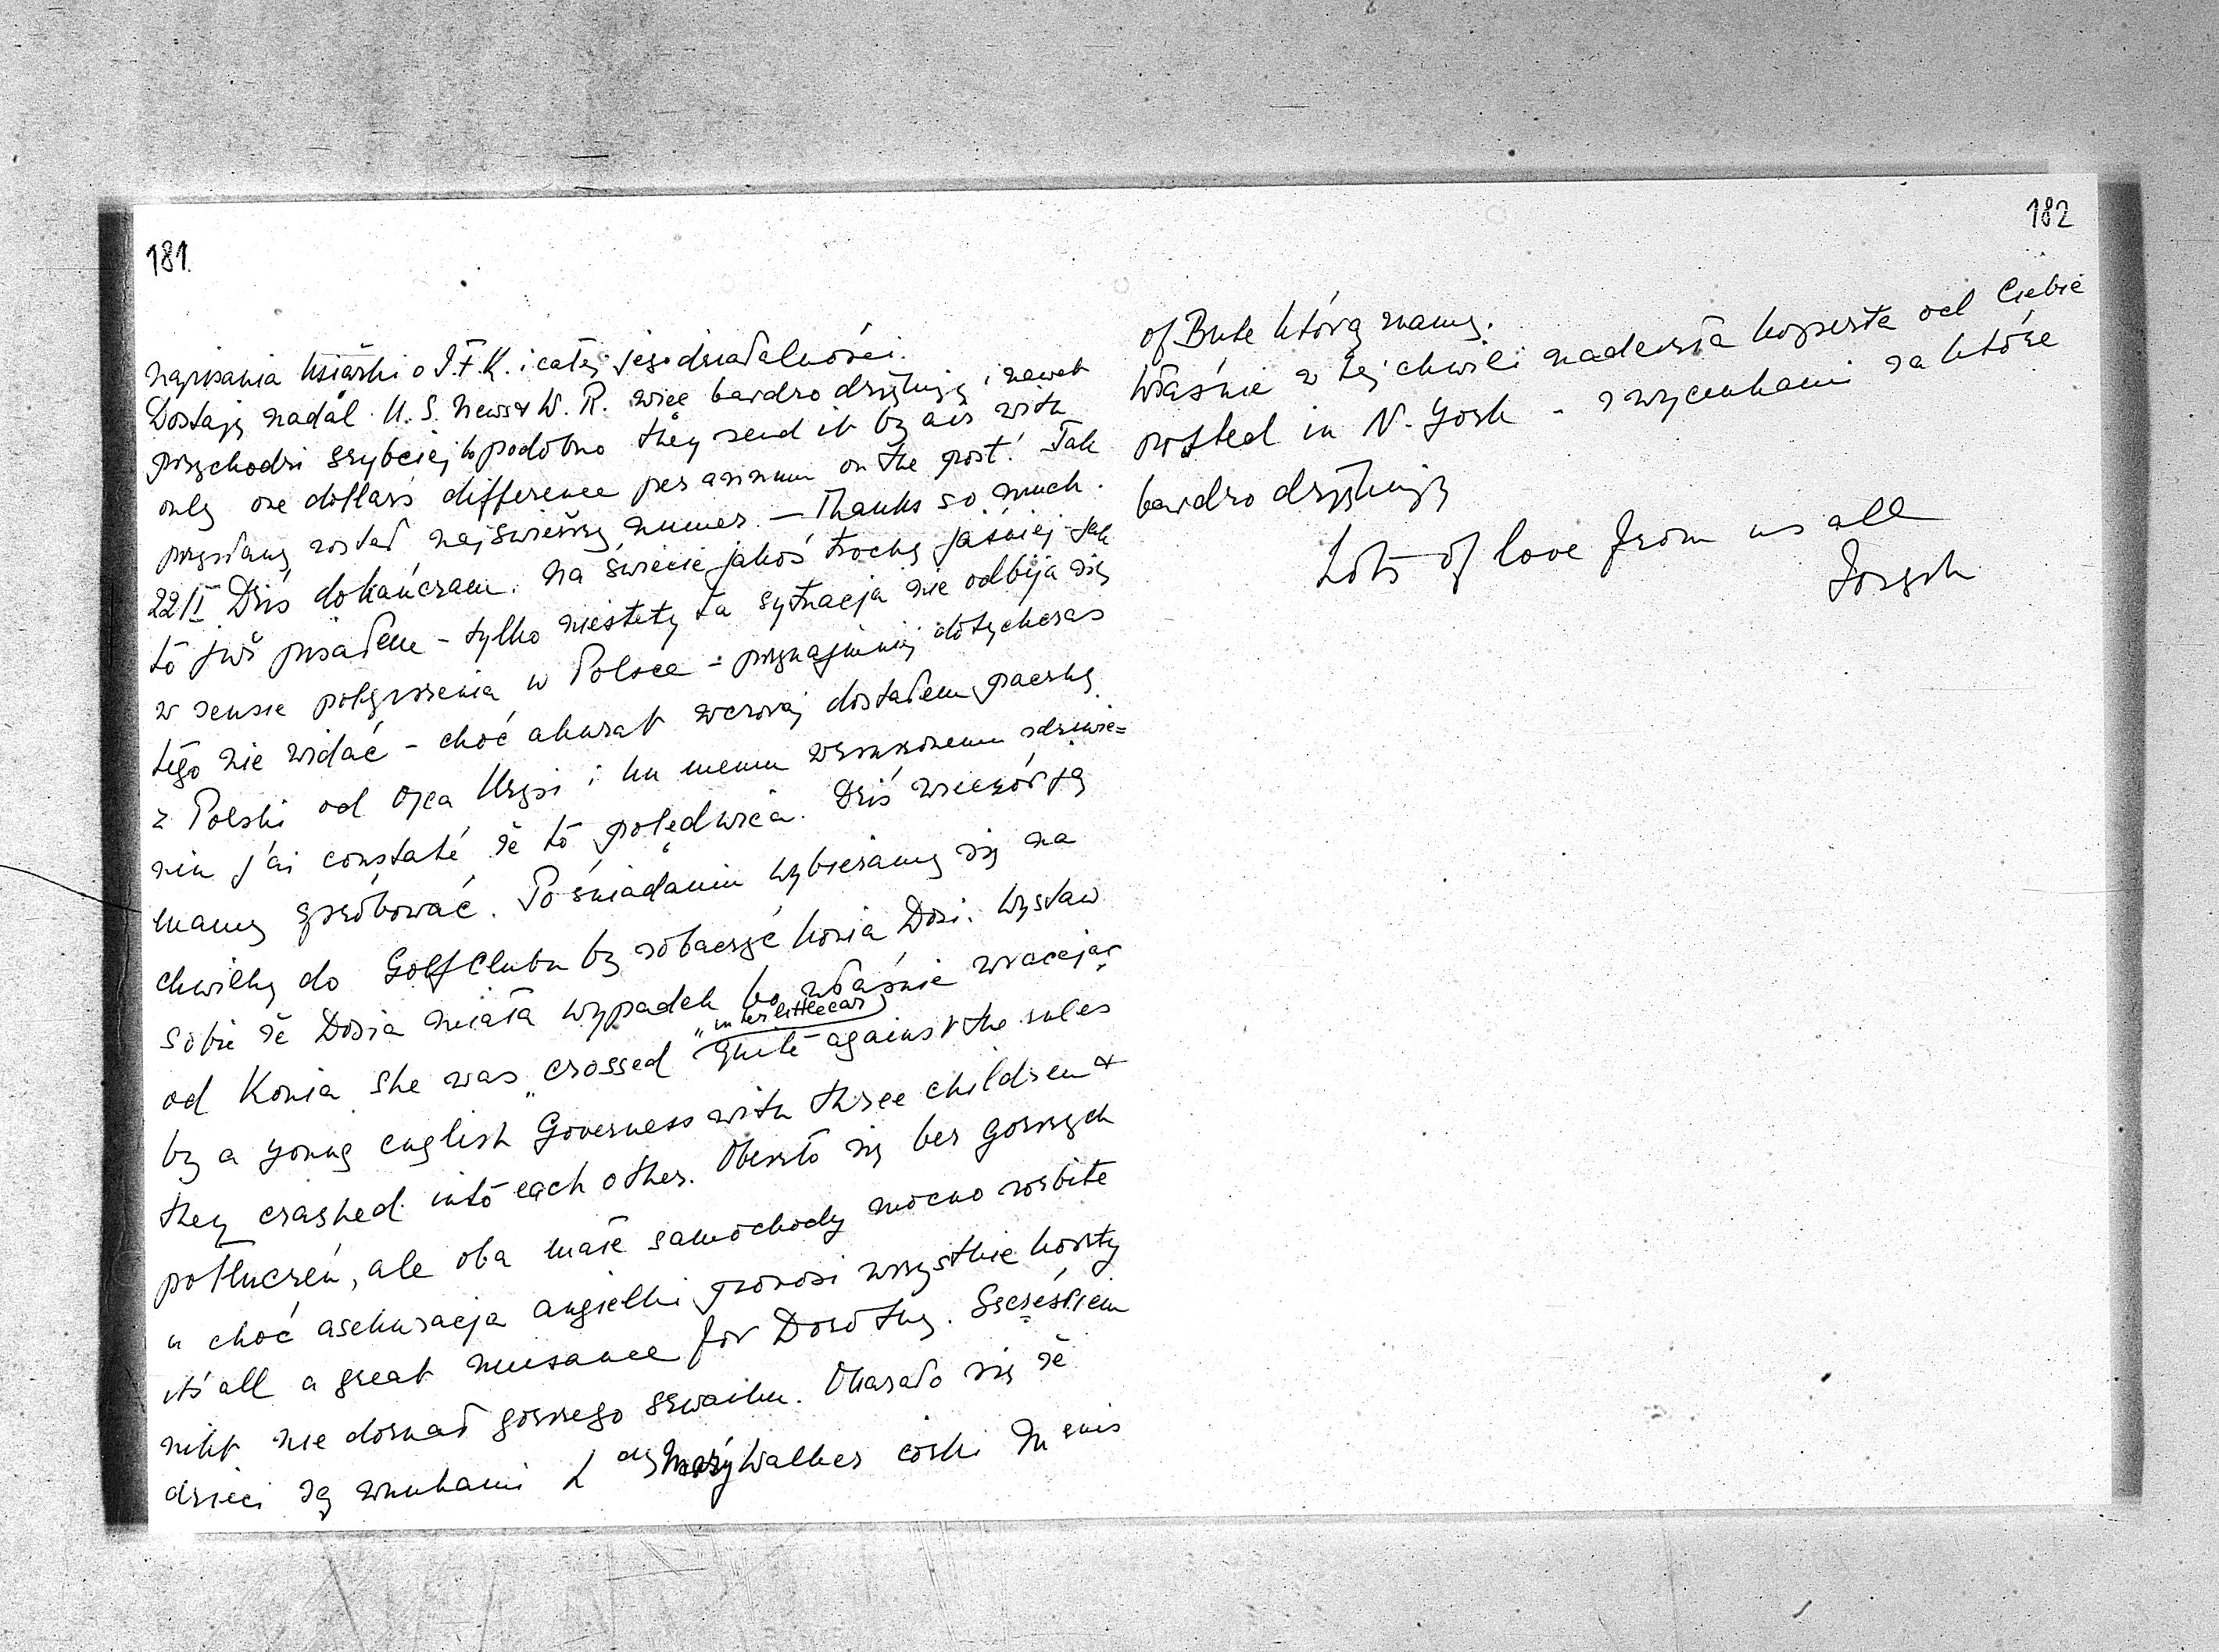 181.
napisania książki o J.F.K. i całej jego działalności.
Dostaję nadal U.S. News & W.R. więc bardzo dziękuję i nawet
przychodzi szybciej bo podobno they send it by air with
only one dollars difference per annum on the post! Tak
przysłany został najświeższy numer. – Thanks so much.
22/I Dziś dokańczam. Na świecie jakoś trochę jaśniej jak
to już pisałem – tylko niestety ta sytuacja nie odbija się
w sensie polepszenia w Polsce – przynajmniej dotychczas
tego nie widać – choć akurat wczoraj dostałem paczkę
z Polski od Ojca Krysi i ku memu zdziwie=
niu j'ai constaté że to polędwica. Dziś wieczór ją
mamy spróbować. Po śniadaniu wybieramy się na
chwilkę do Golf Clubu by zobaczyć konia Dosi. Wystaw
sobie że Dosia miała wypadek bo właśnie wracając
"in her little car"
od Konia she was "crossed" quite against the rules
by a young english Governess with three children &
they crashed into each other. Obeszło się bez gorszych
potłuczeń, ale oba małe samochody mocno rozbite
a choć asekuracja angielki ponosi wszystkie koszty
it's all a great nuisance for Dorothy. Szczęściem
nikt nie doznał gorszego szwanku. Okazało się że
dzieci są wnukami Lady Mary Walker córki Menis
182
of Bute którą znamy.
Właśnie w tej chwili nadeszła koperta od Ciebie
posted in N. York – z wycinkami za które
bardzo dziękuję
Lots of love from us all
Joseph